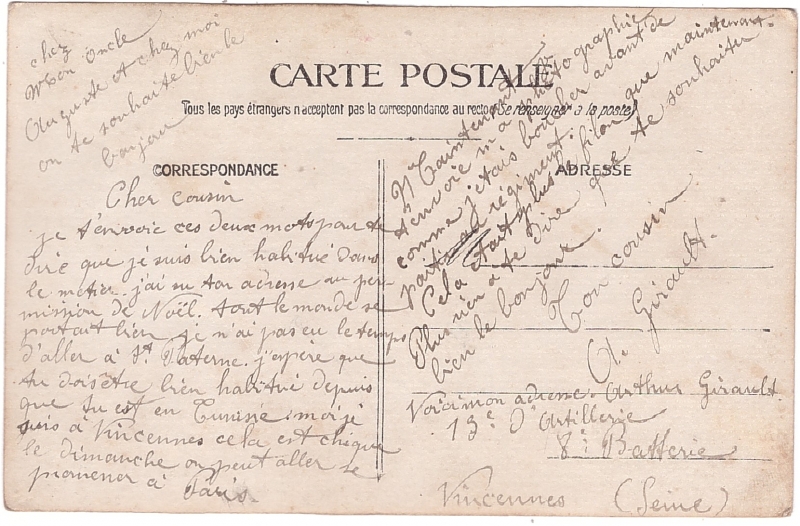 chez
Mon Oncle
Auguste et chez moi
on te souhaite bien le
bonjour
CARTE POSTALE
Tous les pays étrangers n'acceptent pas la correspondance au recto (Se renseigner a la poste)
CORRESPONDANCE
ADRESSE
Cher cousin
je t'envoie ces deux mots pour te
dire que je suis bien habitué dans
le métier. j'ai su ton adresse au per-
mission de Noël. tout le monde se
portait bien je n'ai pas eu le temps
d'aller à St Paterne. j'espère que
tu dois être bien habitué depuis
que tu est en Tunisie. moi je
suis à Vincennes cela est chique
le dimanche on peut aller se
promener à Paris.
Maintenant je
t'envoie ma photographie
comme j'étais boucher avant de
partir au régiment.
Cela était plus le filon que maintenant.
Plus rien a te dire que te souhaiter
bien le bonjour.
Ton cousin
A. Girault.
Voici mon adresse. Arthur Girault.
13e d'Artillerie
8e Batterie
Vincennes (Seine)